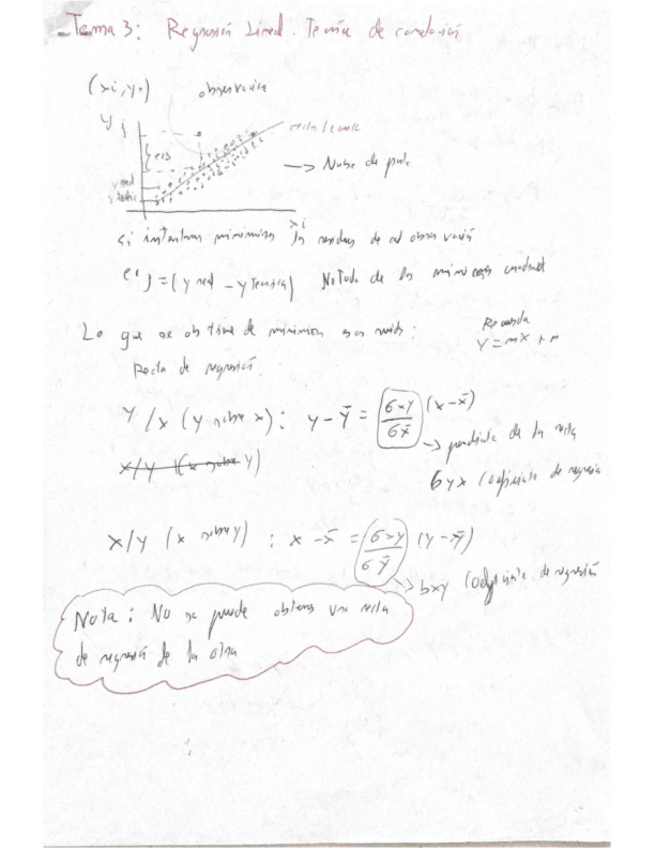 Tema 3: Regresión Lineal. Teoría de correlación
(xi, yj) observación
yj
recta teórica
→ Nube de pto
y real
xi
si intentamos minimizar los residuos de cad observación
eij = (y real - y teórica) Metodo de los mínimos cuadrad
Recuerda
Lo que se obtiene de minimizar esos resid:
Y = mX + n
Recta de regresión.
Y/X (Y sobre x): y - ȳ = σxy/σx̄ (x - x̄)
→ pendiente de la recta
X/Y (x sobre Y)
byx (coeficiente de regresión
X/Y (x sobre y): x - x̄ = σxy/σȳ (y - ȳ)
→ bxy (coeficiente de regresión
Nota: No se puede obtener una recta
de regresión de la otra